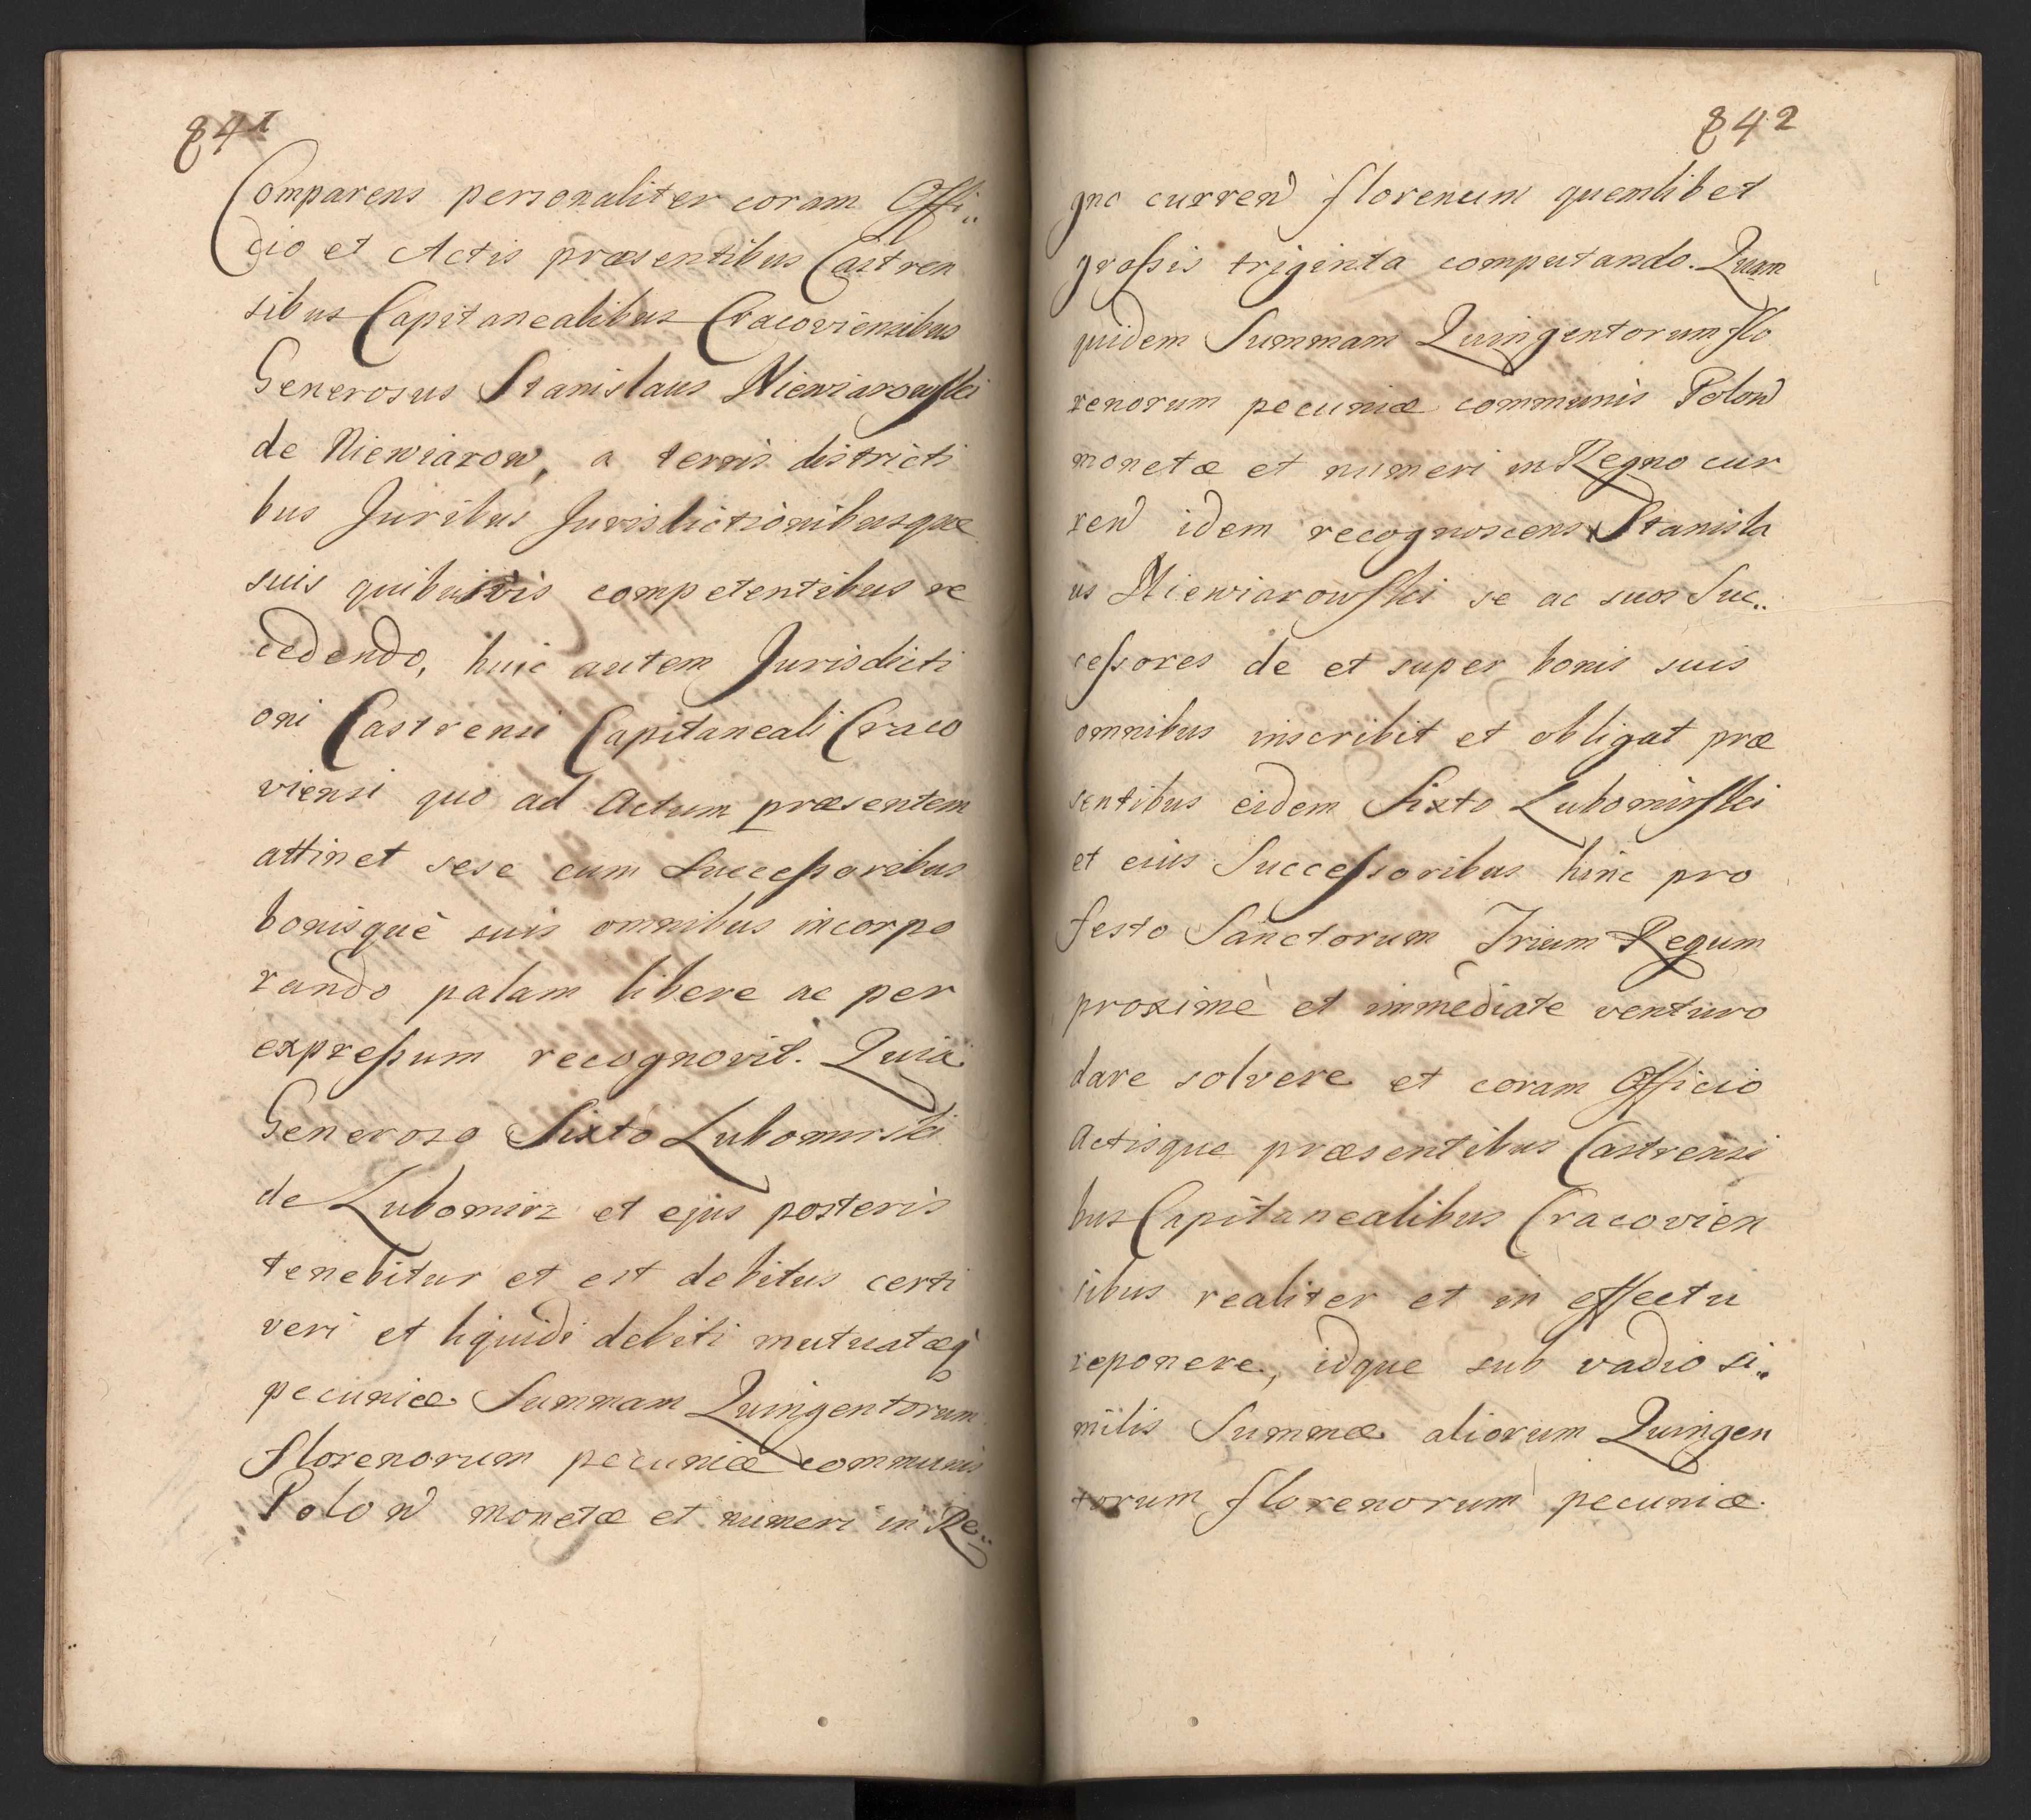 841
Comparens personaliter coram Offi„
cio et Actis præsentibus Castren
sibus Capitanealibus Cracoviensibus
Generosus Stanislaus Niewiarowski
de Niewiarow, a terris districti
bus Juribus Jurisdictionibusque
suis quibusvis competentibus re
cedendo, huic autem Jurisdicti
oni Castrensi Capitaneali Craco
viensi quo ad Actum præsentem
attinet sese cum Successoribus
bonisquè suis omnibus incorpo
rando palam libere ac per
expressum recognovit. Quia
Generoso Sixto Lubomirski
de Lubomirz et ejus posteris
tenebitur et est debitus certi
veri et liquidi debiti mutuatæq
pecuniæ Summam Quingentorum
florenorum pecuniæ communis
Polon monetæ et numeri in Re„
842
gno curren florenum quemlibet
grossis triginta computando. Quam
quidem Summam Quingentorum flo
renorum pecuniæ communis Polon
monetæ et numeri in Regno cur
ren idem recognoscens Stanisla
us Niewiarowski se ac suos Suc„
cessores de et super bonis suis
omnibus inscribit et obligat præ
sentibus eidem Sixto Lubomirski
et eius Successoribus hinc pro
festo Sanctorum Trium Regum
proximè et immediate venturo
dare solvere et coram Officio
Actisque præsentibus Castrensi
bus Capitanealibus Cracovien
sibus realiter et in effectu
reponere, idque sub vadio si„
milis Summæ aliorum Quingen
torum florenorum pecuniæ